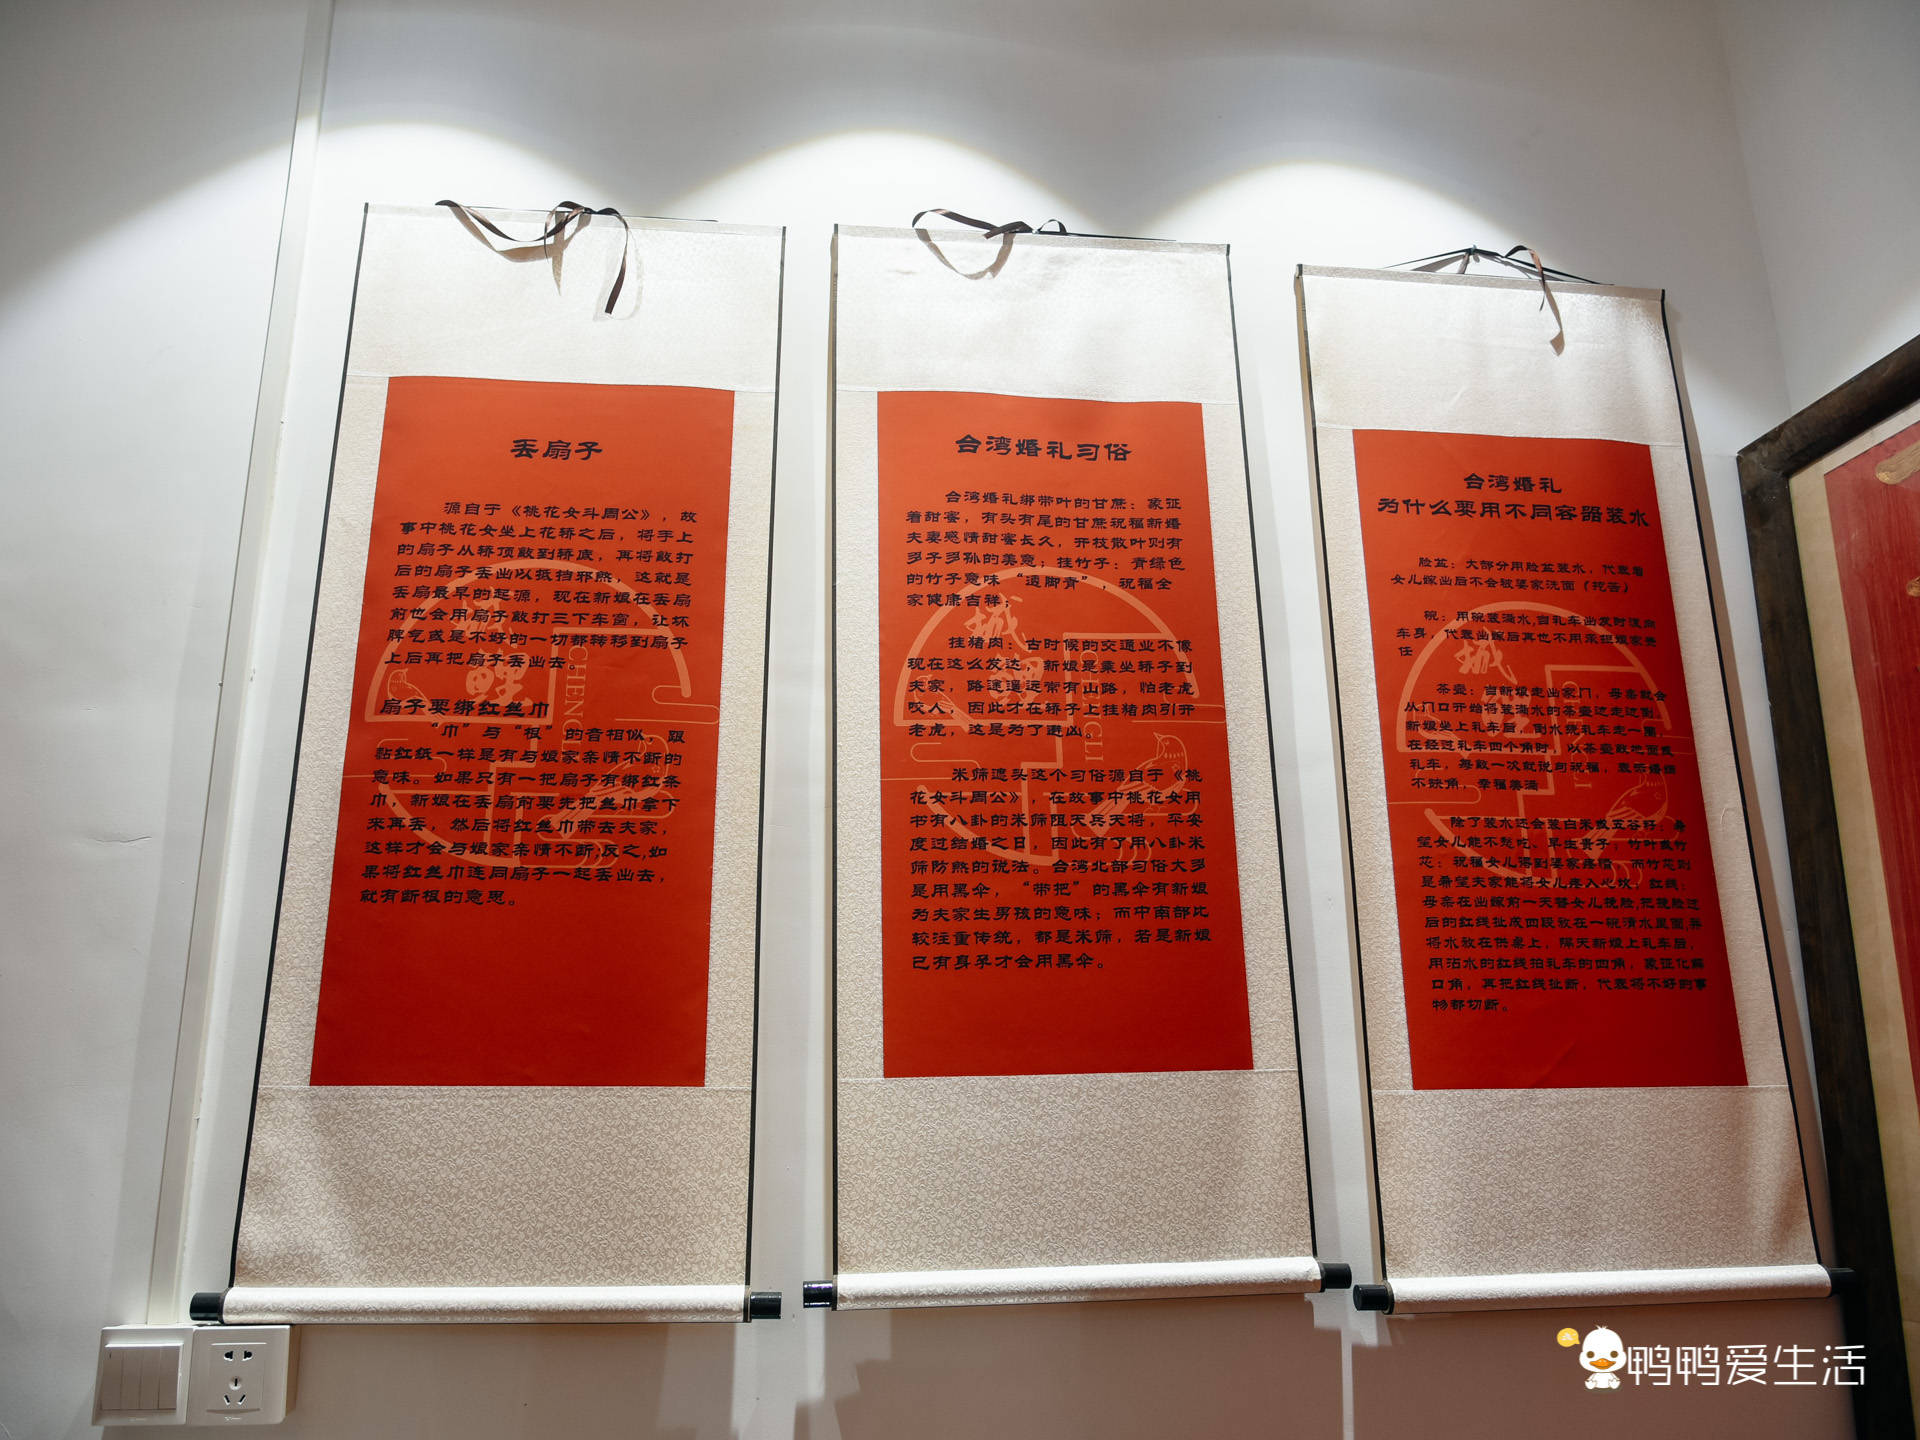 丢扇子
源自于《桃花女斗周公》，故
事中桃花女坐上花轿之后，将手上
的扇子从轿顶敲到轿底，再将敲打
后的扇子丢出以抵挡邪煞，这就是
丢扇最早的起源，现在新娘在丢扇
前也会用扇子敲打三下车窗，让坏
脾气或是不好的一切都转移到扇子
上后再把扇子丢出去。
扇子要绑红丝巾
“巾”与“根”的音相似，跟
黏红纸一样是有与娘家亲情不断的
意味。如果只有一把扇子有绑红条
巾，新娘在丢扇前要先把丝巾拿下
来再丢，然后将红丝巾带去夫家，
这样才会与娘家亲情不断;反之,如
果将红丝巾连同扇子一起丢出去，
就有断根的意思。
城鲤
CHENGLI
台湾婚礼习俗
台湾婚礼绑带叶的甘蔗：象征
着甜蜜，有头有尾的甘蔗祝福新婚
夫妻感情甜蜜长久，开枝散叶则有
多子多孙的美意；挂竹子：青绿色
的竹子意味“透脚青”，祝福全
家健康吉祥；
挂猪肉：古时候的交通业不像
现在这么发达，新娘是乘坐轿子到
夫家，路途遥远常有山路，怕老虎
咬人，因此才在轿子上挂猪肉引开
老虎，这是为了避凶。
米筛遮头这个习俗源自于《桃
花女斗周公》，在故事中桃花女用
书有八卦的米筛阻天兵天将，平安
度过结婚之日，因此有了用八卦米
筛防煞的说法。台湾北部习俗大多
是用黑伞，“带把”的黑伞有新娘
为夫家生男孩的意味；而中南部比
较注重传统，都是米筛，若是新娘
已有身孕才会用黑伞。
城鲤
CHENGLI
台湾婚礼
为什么要用不同容器装水
脸盆：大部分用脸盆装水，代表着
女儿嫁出后不会被婆家洗面（挖苦）
碗：用碗装满水,自礼车出发时泼向
车身，代表出嫁后再也不用承担娘家责
任
茶壶：当新娘走出家门，母亲就会
从门口开始将装满水的茶壶边走边倒，
新娘坐上礼车后，倒水绕礼车走一圈，
在经过礼车四个角时，以茶壶敲地面或
礼车，每敲一次就说句祝福，表示婚姻
不缺角，幸福美满
除了装水还会装白米或五谷籽：希
望女儿能不愁吃、早生贵子；竹叶或竹
花：祝福女儿得到婆家疼惜，而竹花则
是希望夫家能将女儿疼入心坎；红线：
母亲在出嫁前一天替女儿挽脸,把挽脸过
后的红线扯成四段放在一碗清水里面,并
将水放在供桌上，隔天新娘上礼车后，
用沾水的红线拍礼车的四角，象征化解
口角，再把红线扯断，代表将不好的事
物都切断。
鸭鸭爱生活